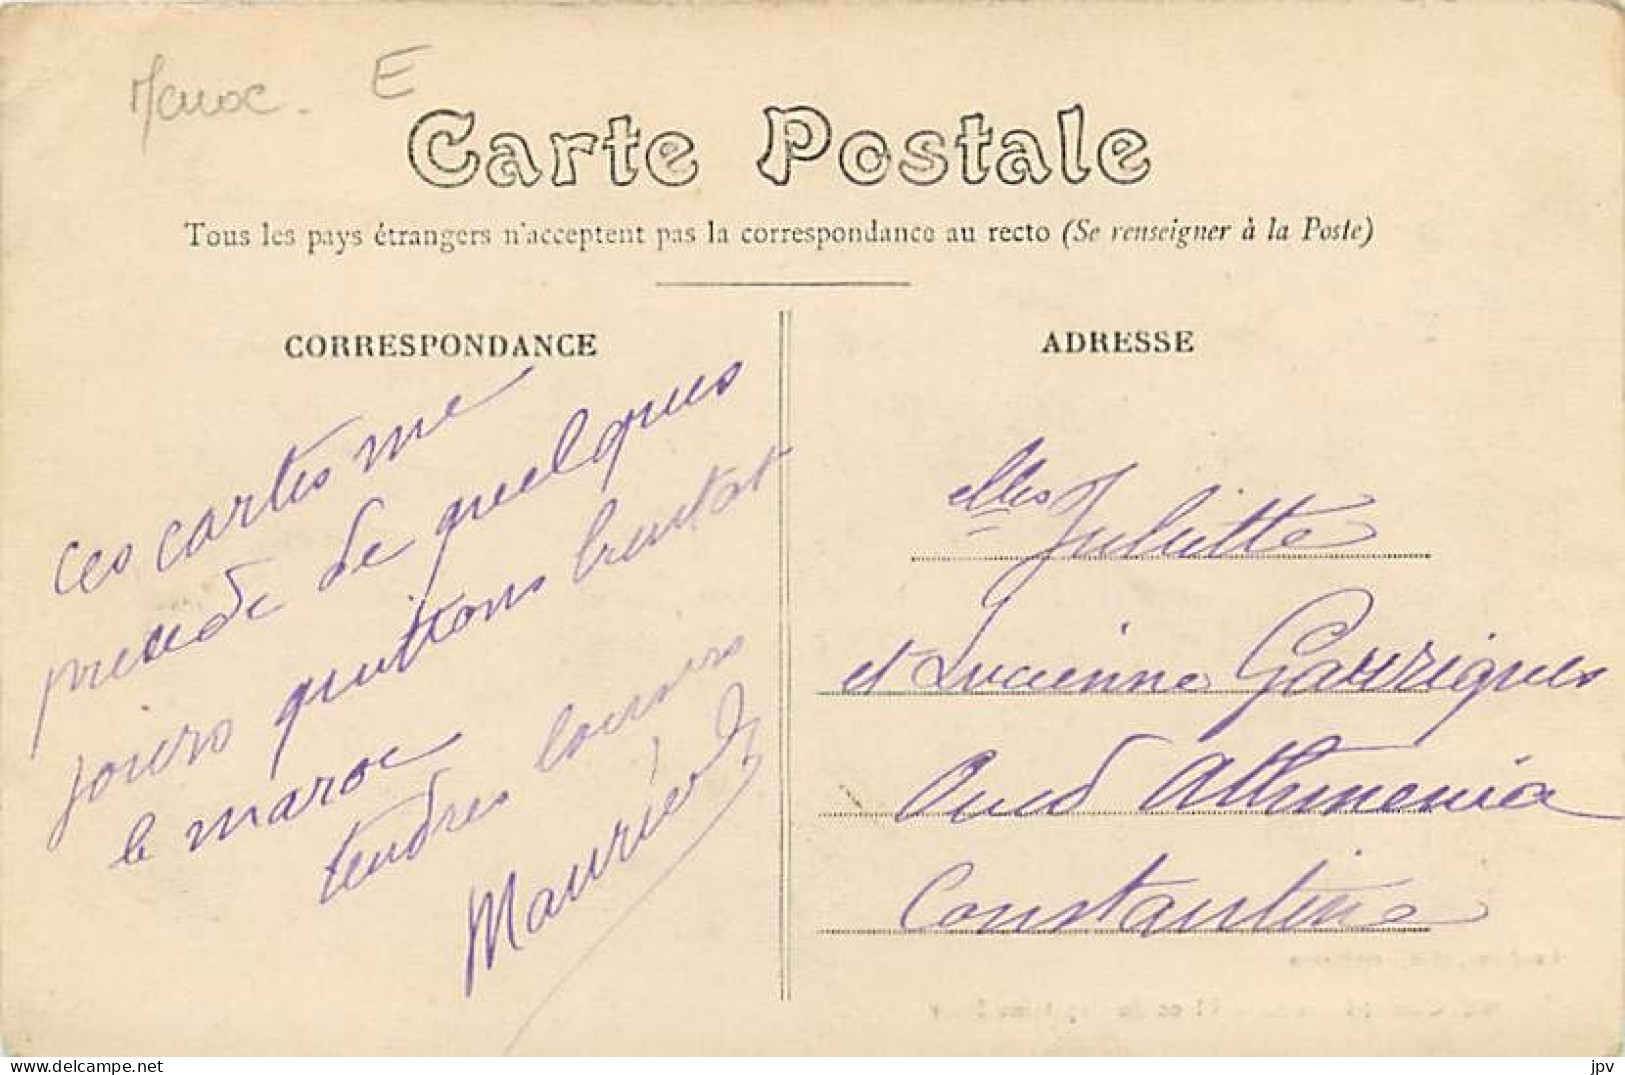 Maroc. E
Carte Postale
Tous les pays étrangers n'acceptent pas la correspondance au recto (Se renseigner à la Poste)
CORRESPONDANCE
ces cartes me
precede de quelques
jours quittons bientot
le maroc
tendres baisers
Maurice
ADRESSE
elles Juliette
et Lucienne Garrigues
Oued Athmenia
Constantine
jpv
www.delcampe.net